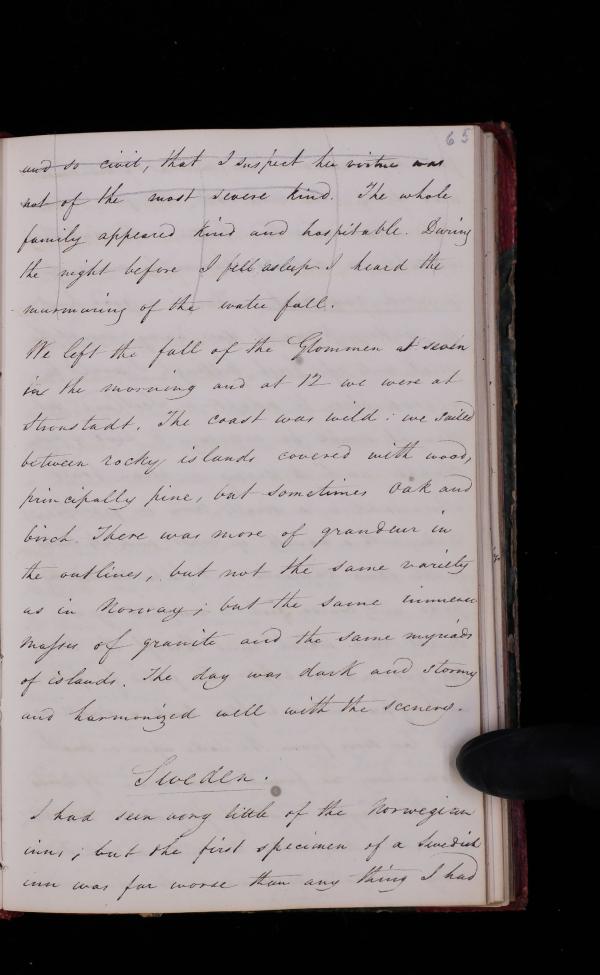 65
and so civil, that I suspect her virtue was
not of the most severe kind. The whole
family appeared kind and hospitable. During
the night before I fell asleep I heard the
murmuring of the water fall.
We left the fall of the Glommen at seven
in the morning and at 12 we were at
Stromstadt. The coast was wild: we sailed
between rocky islands covered with wood,
principally pine, but sometimes oak and
birch. There was more of grandeur in
the outlines, but not the same variety
as in Norway; but the same immense
masses of granite and the same myriads
of islands. The day was dark and stormy
and harmonized well with the scenery.
Sweden.
I had seen very little of the Norwegian
inns; but the first specimen of a Swedish
inn was far worse than any thing I had